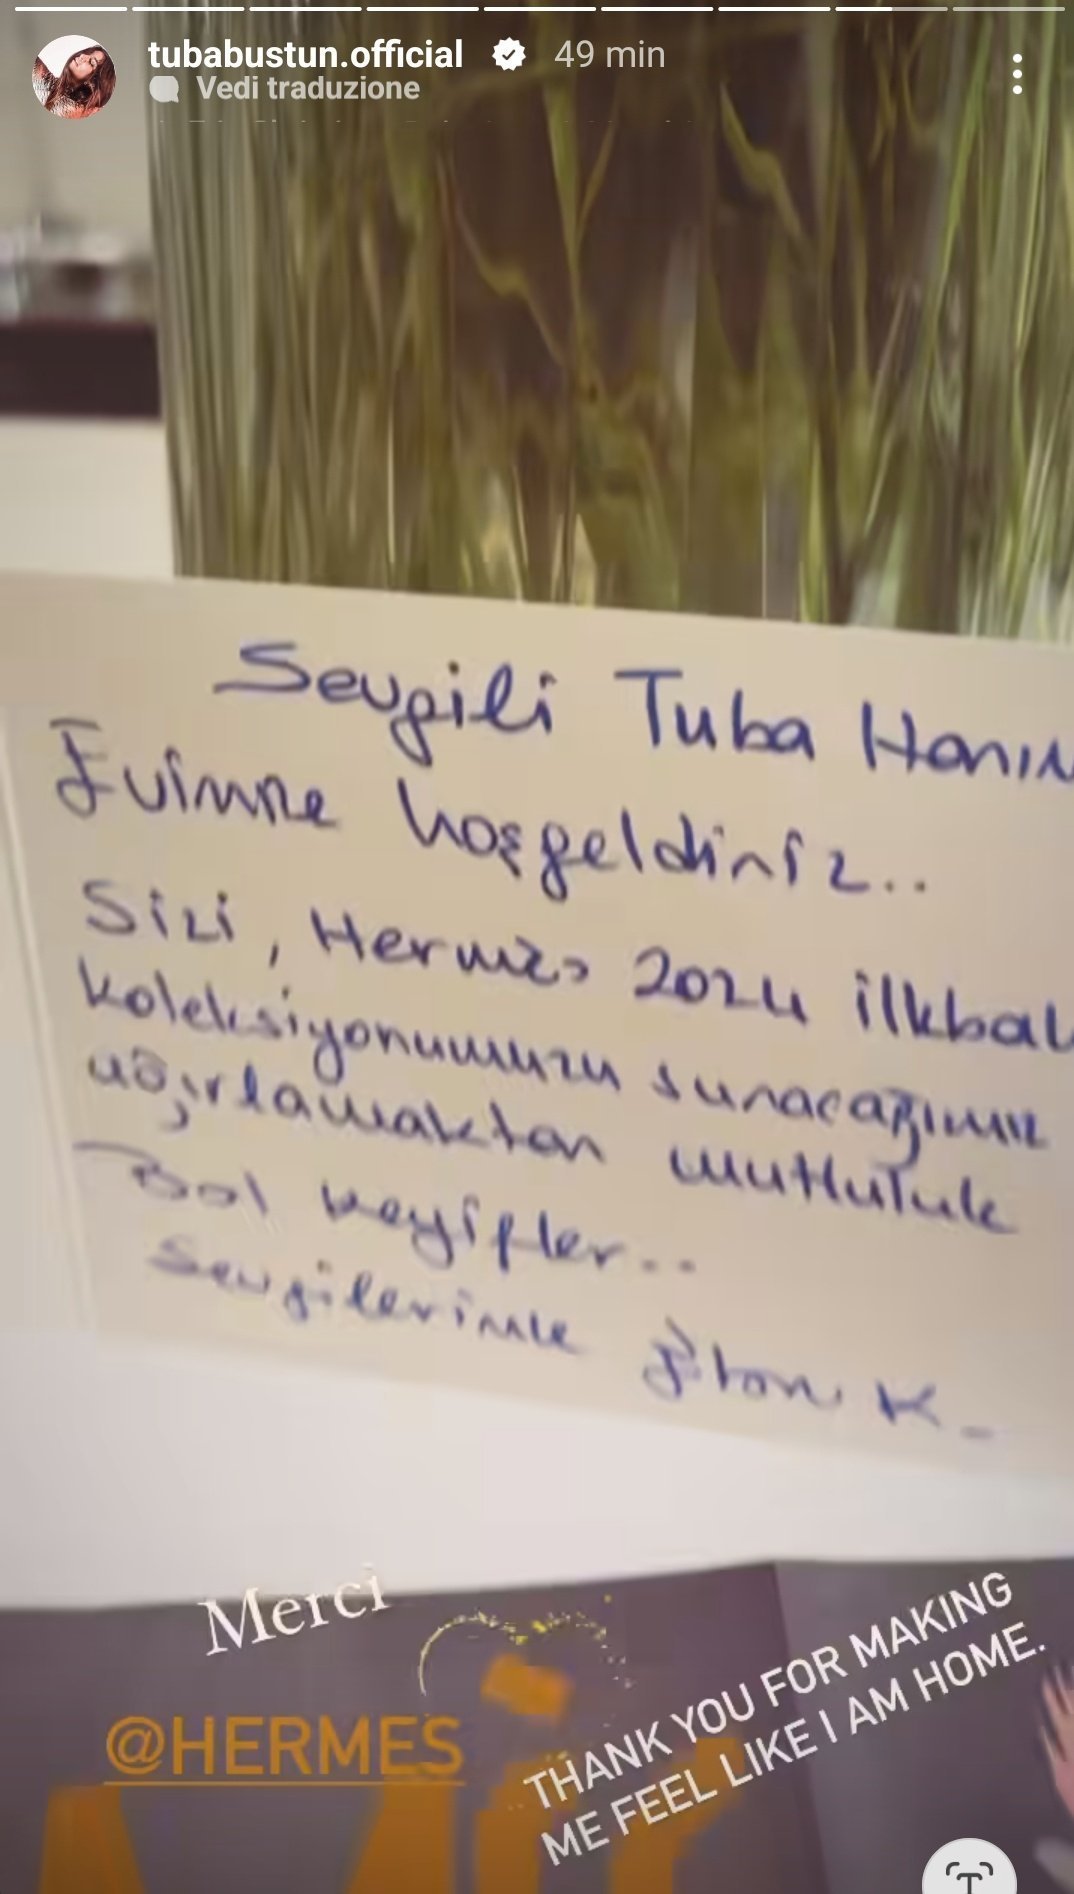 tubabustun.official 49 min
Vedi traduzione
Sevgili Tuba Hanım
Evimize hoşgeldiniz..
Sizi, Hermes 2024 ilkbah
koleksiyonumuzu sunacağımız
ağırlamaktan mutluluk
Bol keyifler..
Sevgilerimle K.
Merci
@HERMES
THANK YOU FOR MAKING
ME FEEL LIKE I AM HOME.